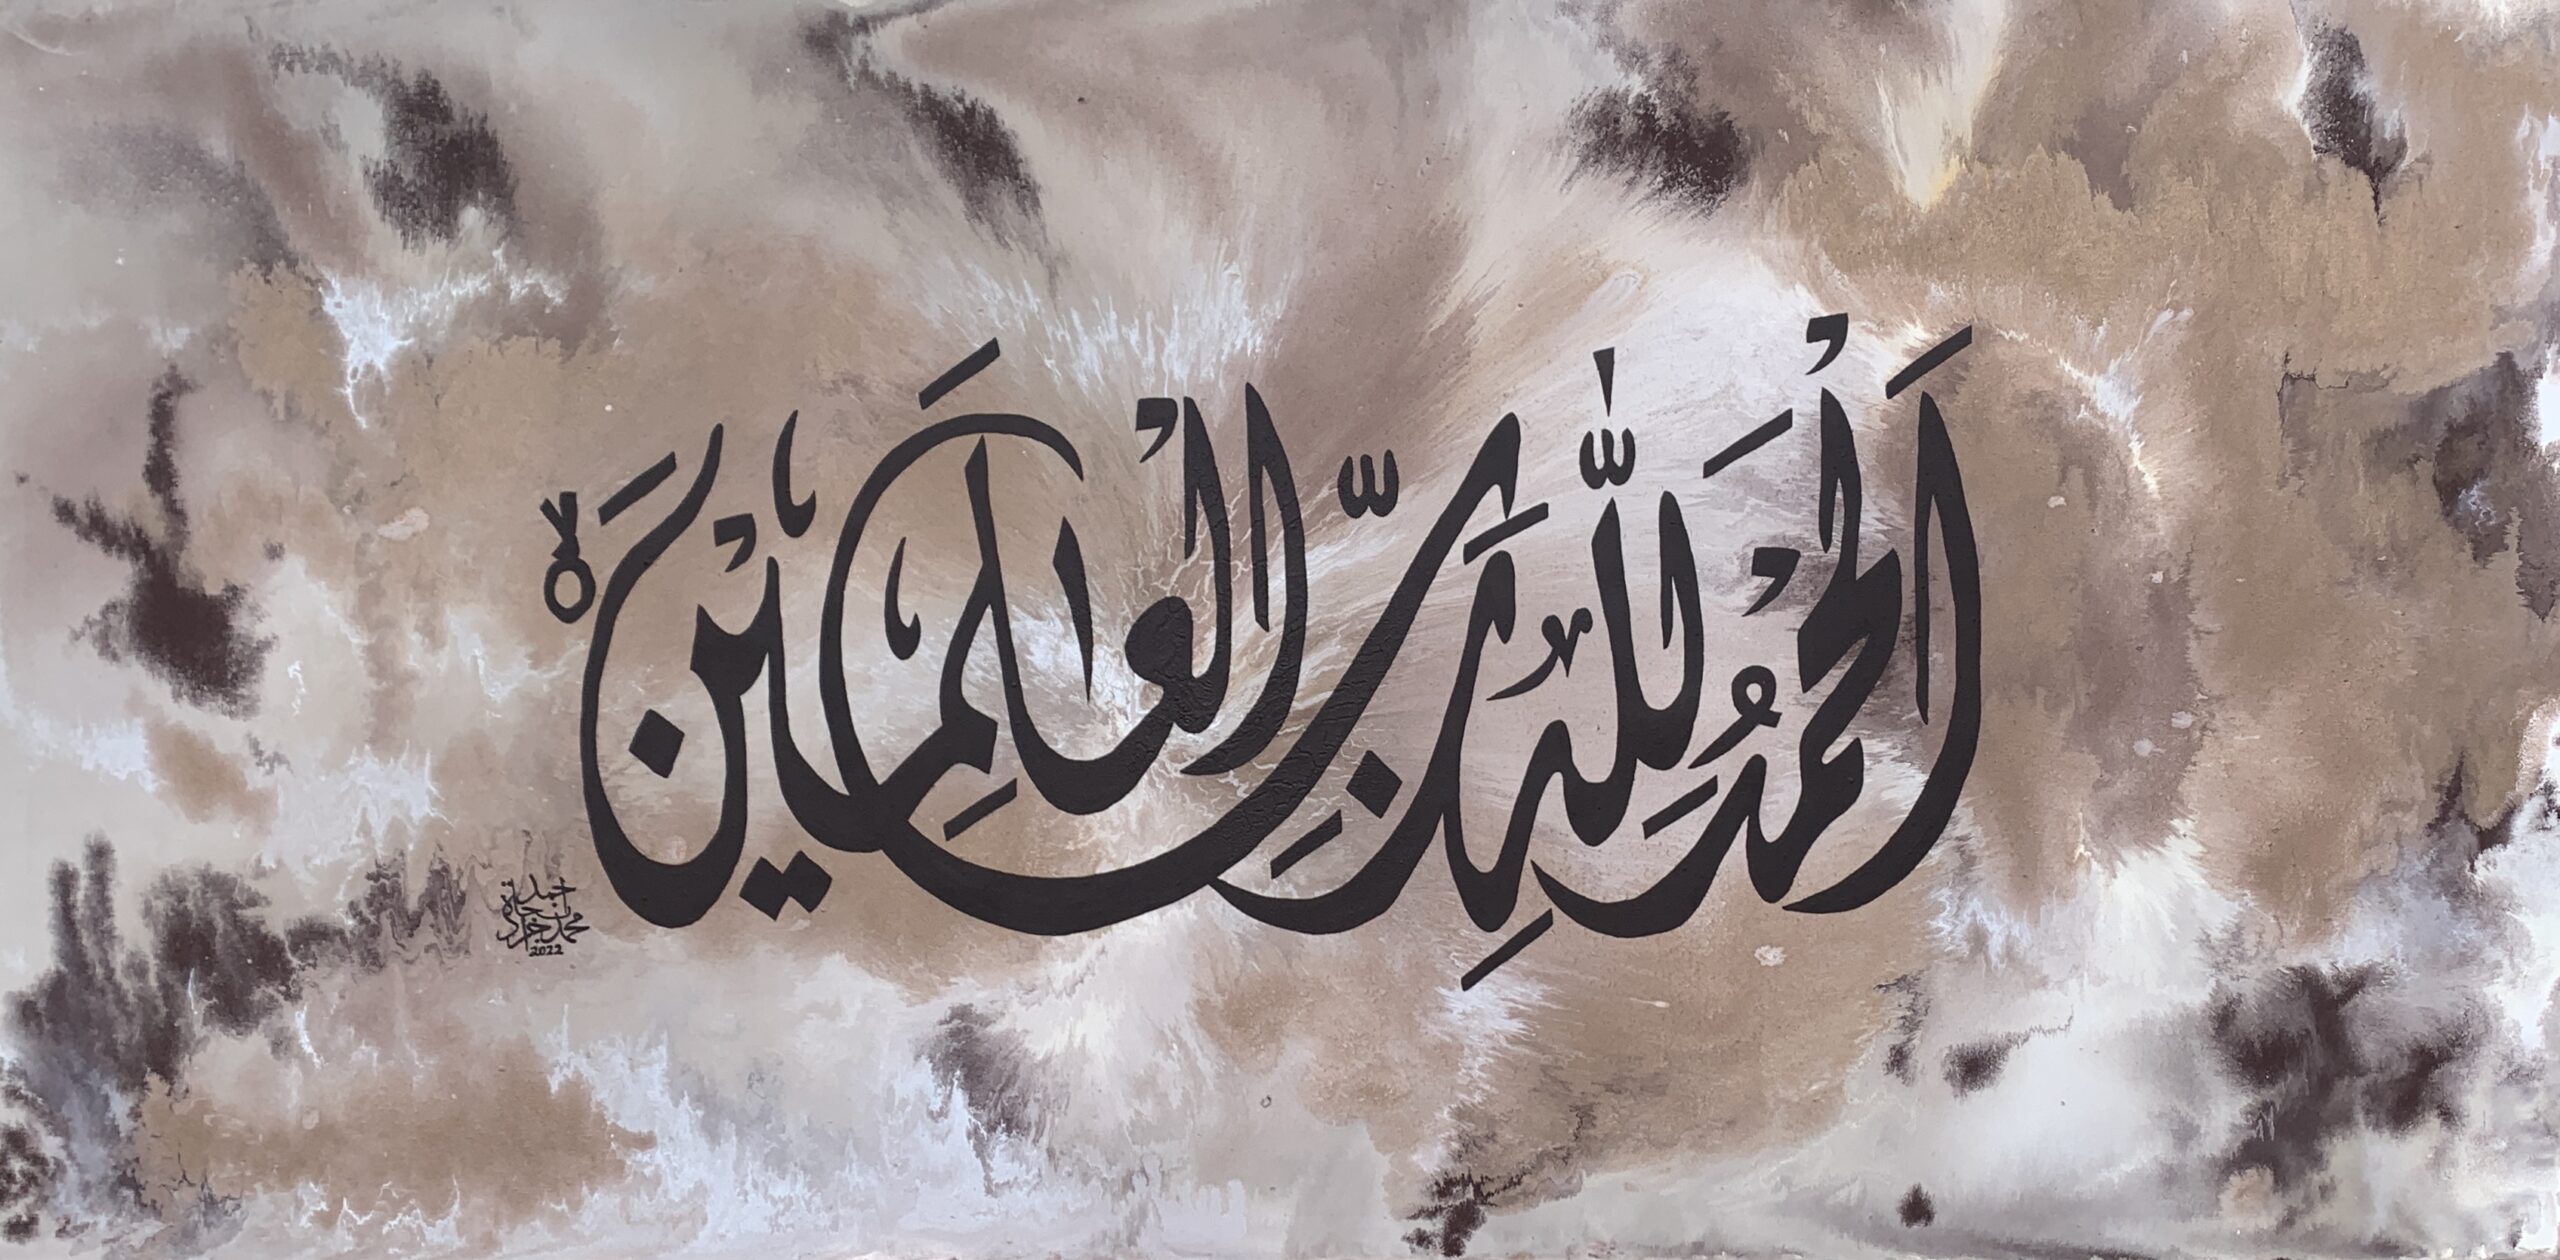 اَلْحَمْدُ لِلّٰهِ رَبِّ الْعَالَمِيْنَۙ
محمد
2022